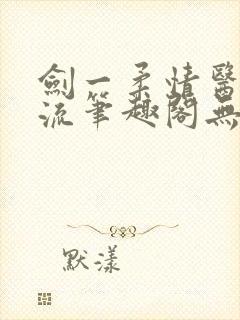 劍一柔情醫
流筆趣閣無
默漾